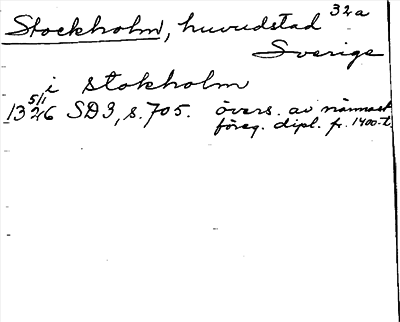 Stockholm, huvudstad 32a
Sverige
i stokholm
13 5/1 26 SD3, s. 705. övers. av närmast
föreg. dipl. fr. 1400-t.